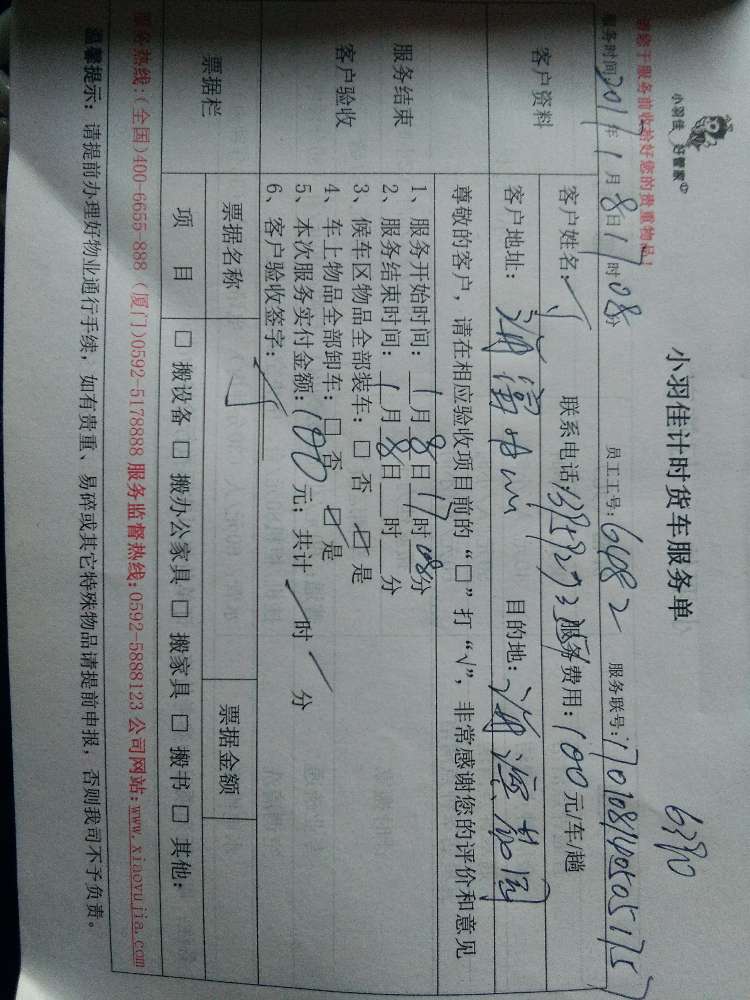 小羽佳 好管家
小羽佳计时货车服务单
6390
请您于服务前收拾好您的贵重物品！
服务时间 2017年1月8日17时08分 员工工号：6482 服务联号：
客户资料
客户姓名： 联系电话： 服务费用：100元/车/趟
客户地址： 目的地：
服务结束
客户验收
尊敬的客户，请在相应验收项目前的“□”打“√”，非常感谢您的评价和意见
1、服务开始时间：1月8日17时08分
2、服务结束时间：1月8日__时__分
3、候车区物品全部装车：□ 否 ☑ 是
4、车上物品全部卸车：□ 否 ☑ 是
5、本次服务实付金额：100元；共计 / 时 / 分
6、客户验收签字：
票据栏
票据名称 票据金额
项 目 □ 搬设备 □ 搬办公家具 □ 搬家具 □ 搬书 □ 其他：
服务热线：(全国)400-6655-888 (厦门)0592-5178888 服务监督热线：0592-5888123 公司网站：www.xiaoyujia.com
温馨提示：请提前办理好物业通行手续，如有贵重、易碎或其它特殊物品请提前申报，否则我司不予负责。